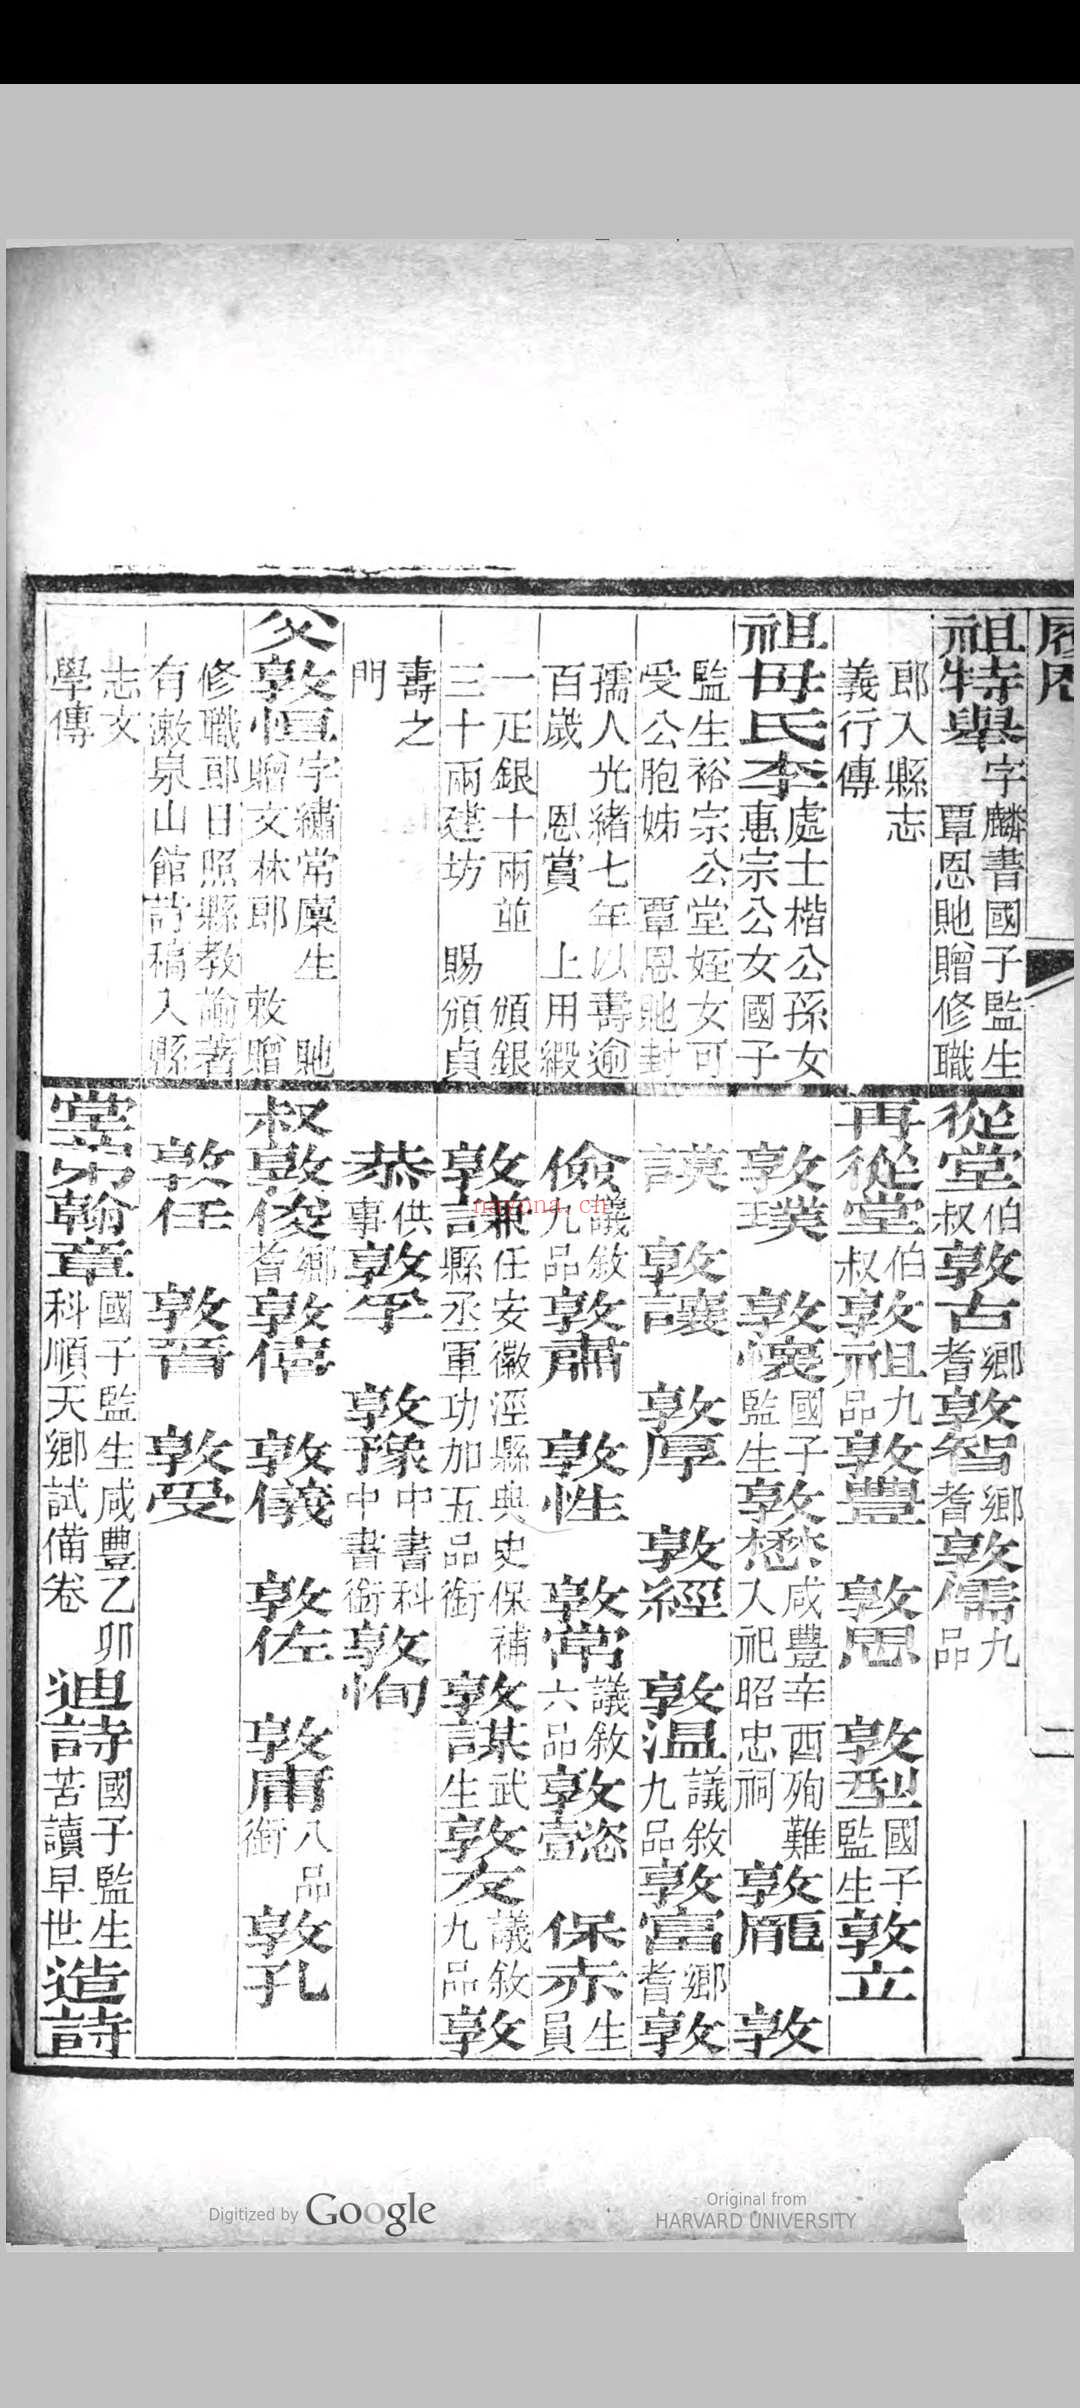 履歷
二
祖特舉字麟書國子監生 覃恩貤贈修職
郎入縣志義行傳
祖母氏李處士楷公孫女惠宗公女國子
監生裕宗公堂姪女可受公胞姊 覃恩貤封
孺人光緒七年以壽逾百歲 恩賞 上用緞
一疋銀十兩並 頒銀三十兩建坊 賜頒貞
壽之門
父敦恒字繡常廩生 貤贈文林郎 敕贈
修職郎日照縣教諭著有漱泉山館詩稿入縣
志文學傳
從堂伯叔敦古鄉耆敦智鄉耆敦儒九品
再從堂伯叔敦祖九品敦豐 敦思 敦型國子監生敦立
敦璞 敦懷國子監生敦懋咸豐辛酉殉難入祀昭忠祠 敦龐 敦
謨 敦讓 敦厚 敦經 敦温議敘九品敦富鄉耆敦
儉議敘九品敦肅 敦性 敦常議敘六品敦懿 保赤生員
敦謙任安徽涇縣典史保補縣丞軍功加五品銜 敦謀武生敦友議敘九品敦
恭供事敦孚 敦豫中書科中書銜敦恂
叔敦俊鄉耆敦僖 敦儀 敦佐 敦庸八品銜 敦孔
敦任 敦晉 敦受
堂弟翰章國子監生咸豐乙卯科順天鄉試備卷 迪詩國子監生苦讀早世造詩
nayona.cn
Digitized by Google
Original from
HARVARD UNIVERSITY